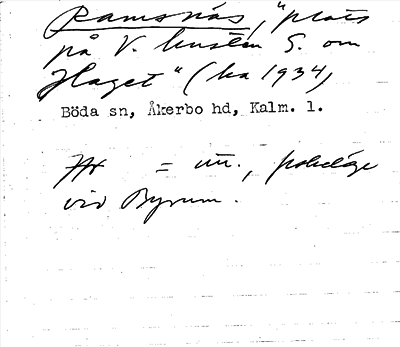 Ramsnäs, "plats
på V. kusten S. om
Haget" (ka 1934,
Böda sn, Åkerbo hd, Kalm. l.
= un.,
vid Byrum.